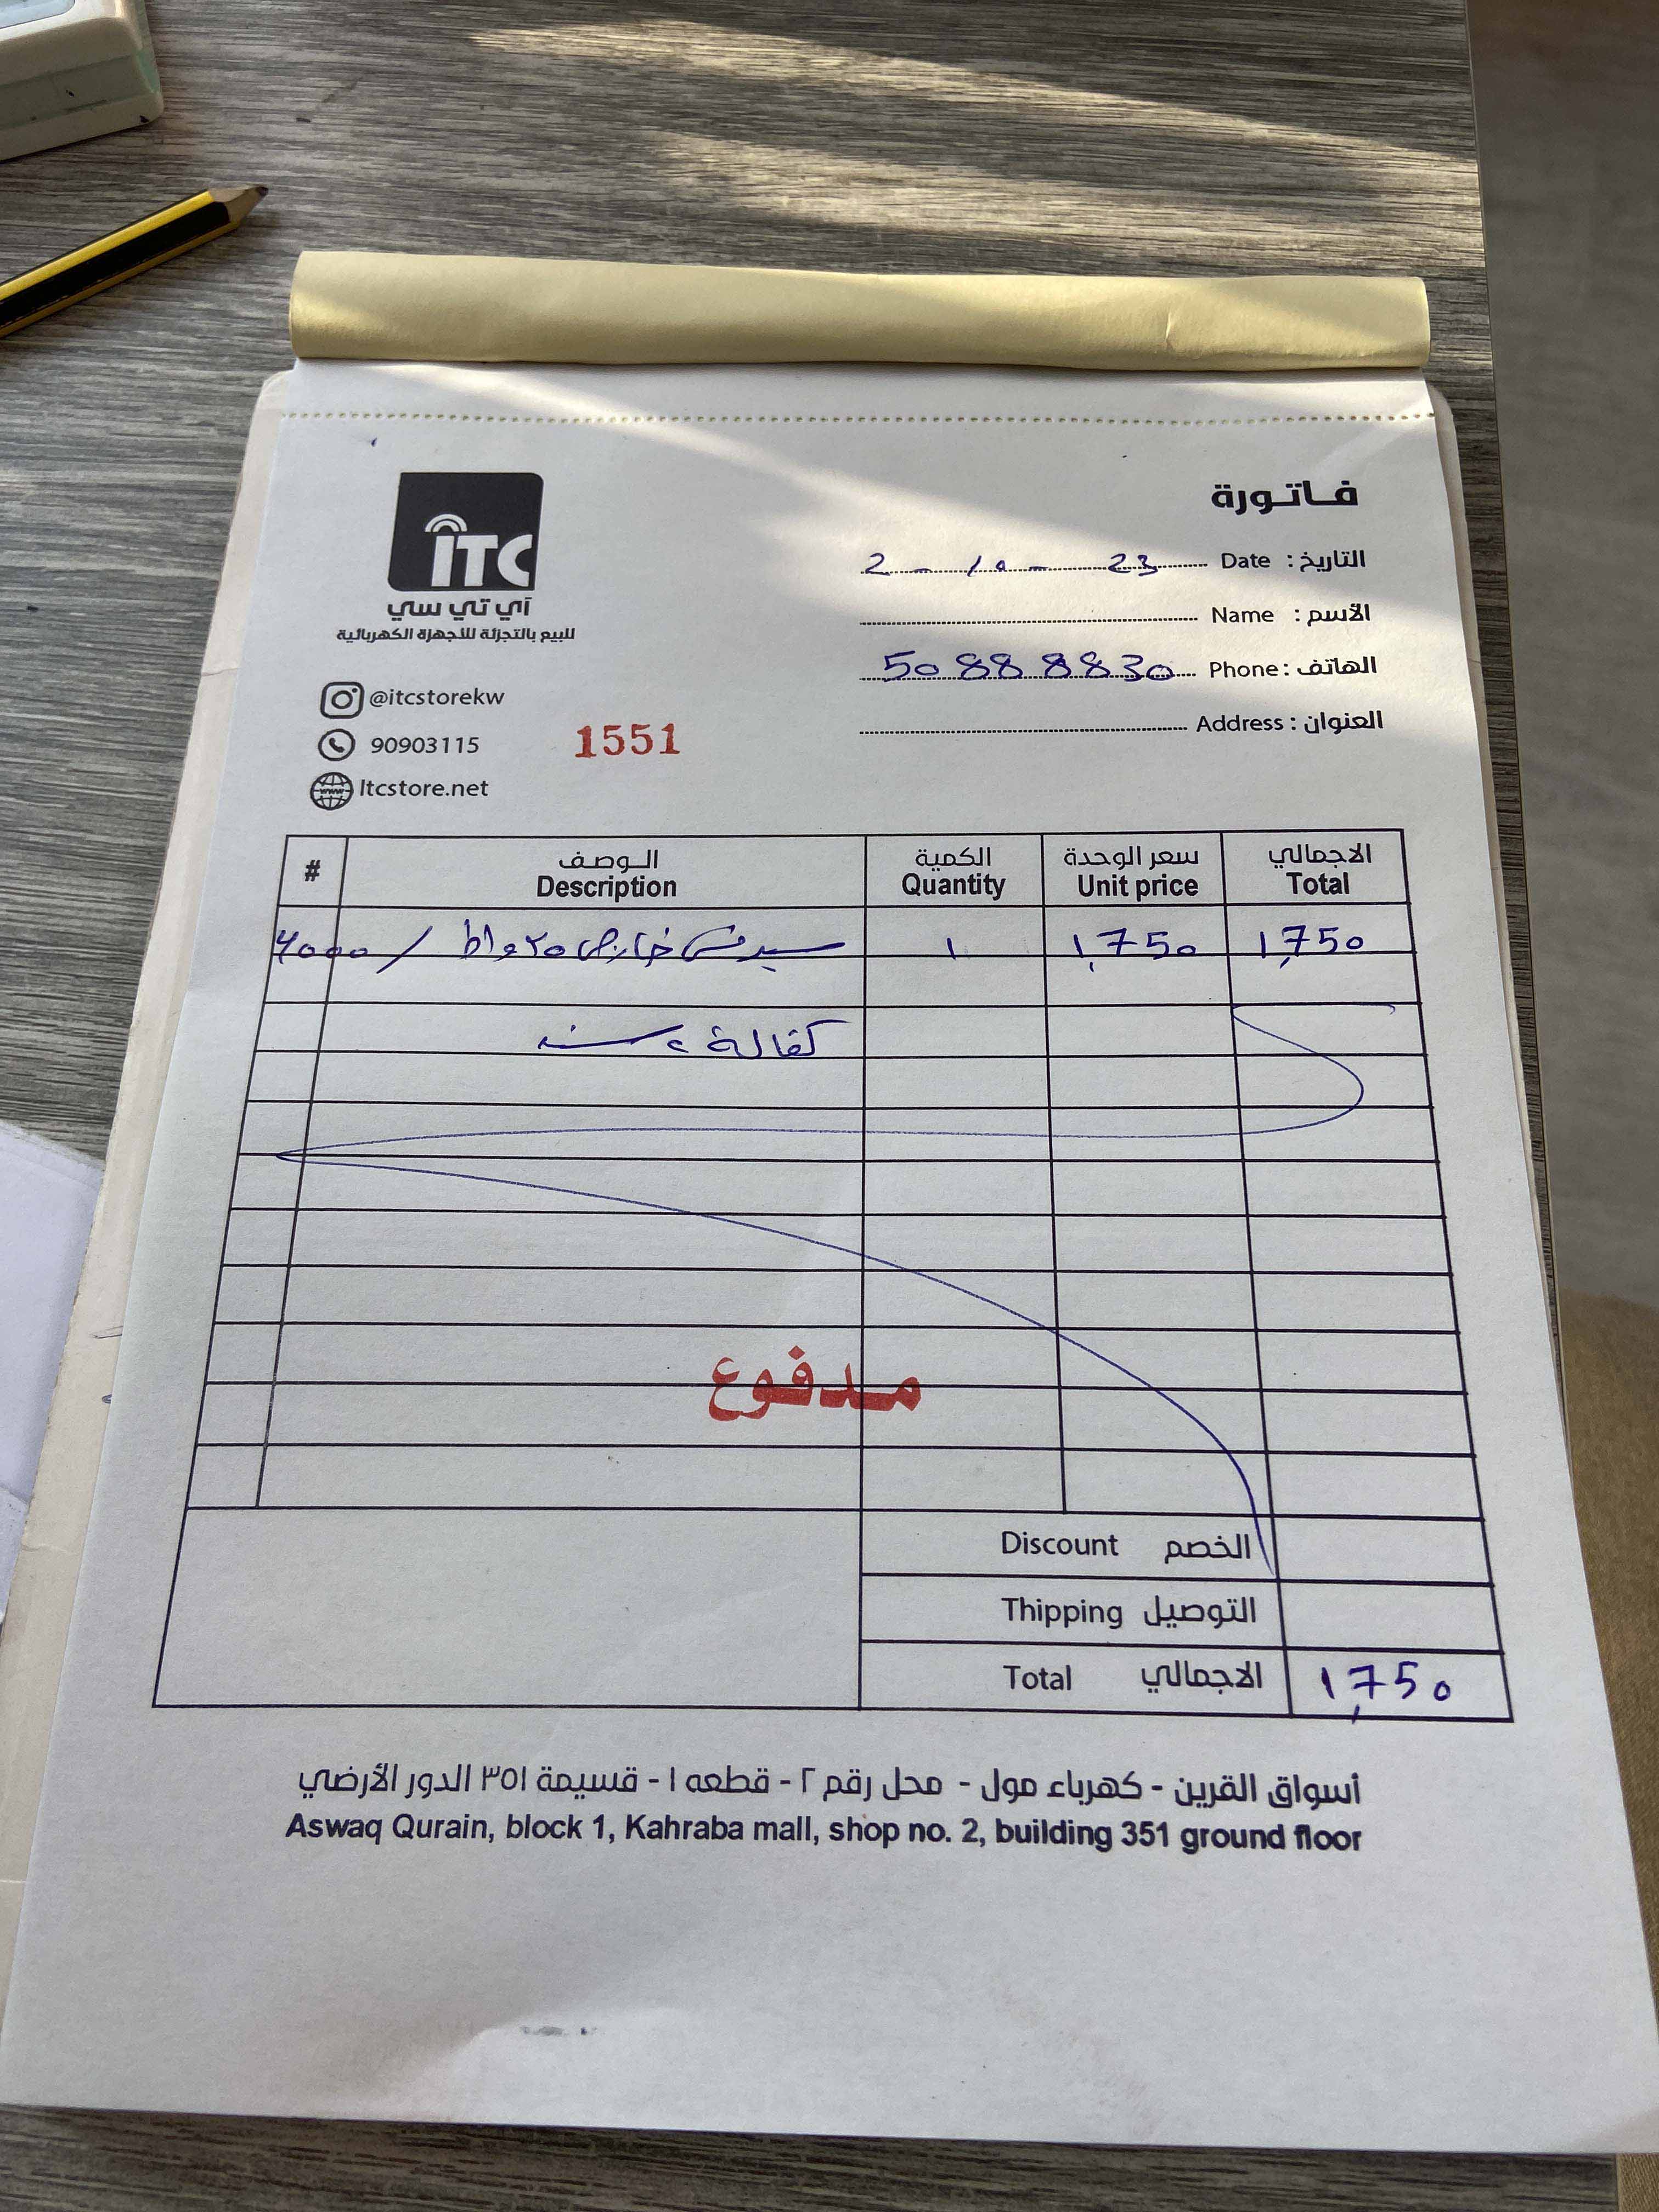 فاتورة
ITC
آي تي سي
للبيع بالتجزئة للأجهزة الكهربائية
@itcstorekw
90903115
Itcstore.net
1551
التاريخ : Date 2 - 10 - 23
الأسم : Name
الهاتف : Phone 50888830
العنوان : Address
# الوصف الكمية سعر الوحدة الاجمالي
Description Quantity Unit price Total
خارجي ٢٥ واط / 1 1,750 1,750
كفالة سنه
مدفوع
Discount الخصم
Thipping التوصيل
Total الاجمالي 1,750
أسواق القرين - كهرباء مول - محل رقم ٢ - قطعه ١ - قسيمة ٣٥١ الدور الأرضي
Aswaq Qurain, block 1, Kahraba mall, shop no. 2, building 351 ground floor